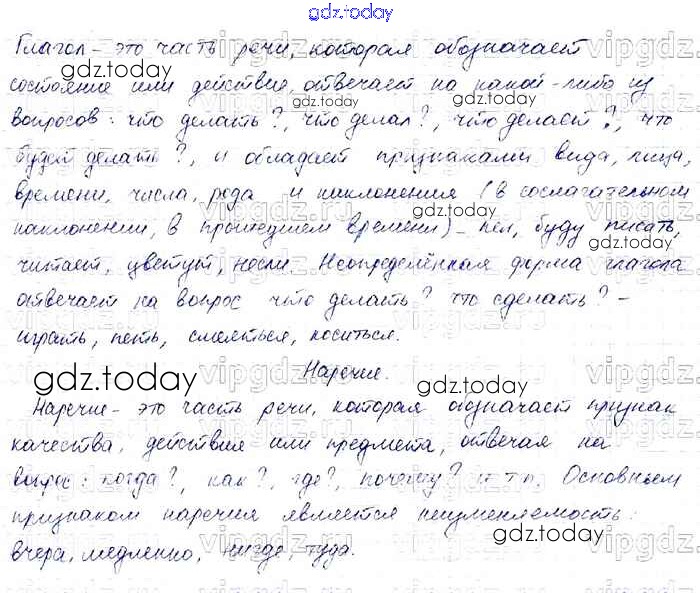 gdz.today
Глагол - это часть речи, которая обозначает
состояние или действие, отвечает на какой-либо из
вопросов: что делать?, что делал?, что делает?, что
будет делать?, и обладает признаками вида, лица,
времени, числа, рода и наклонения (в сослагательном
наклонении, в прошедшем времени) - пел, буду писать,
читает, цветут, несли. Неопределённая форма глагола
отвечает на вопрос что делать? что сделать? -
играть, петь, смеяться, носиться.
Наречие.
Наречие - это часть речи, которая обозначает признак
качества, действия или предмета, отвечая на
вопрос: когда?, как?, где?, почему? и т.п. Основным
признаком наречия является неизменяемость:
вчера, медленно, нигде, туда.